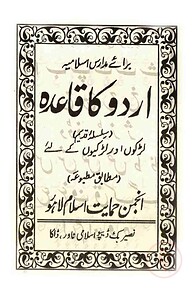 برائے مدارس اسلامیہ
اردو کا قاعدہ
(سلسلۂ قدیم)
لڑکوں اور لڑکیوں کے لئے
(مطابق مطبوعہ)
انجمن حمایت اسلام لاہور
نصیر بک ڈپو